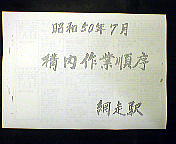 昭和50年7月
構内作業順序
網走駅